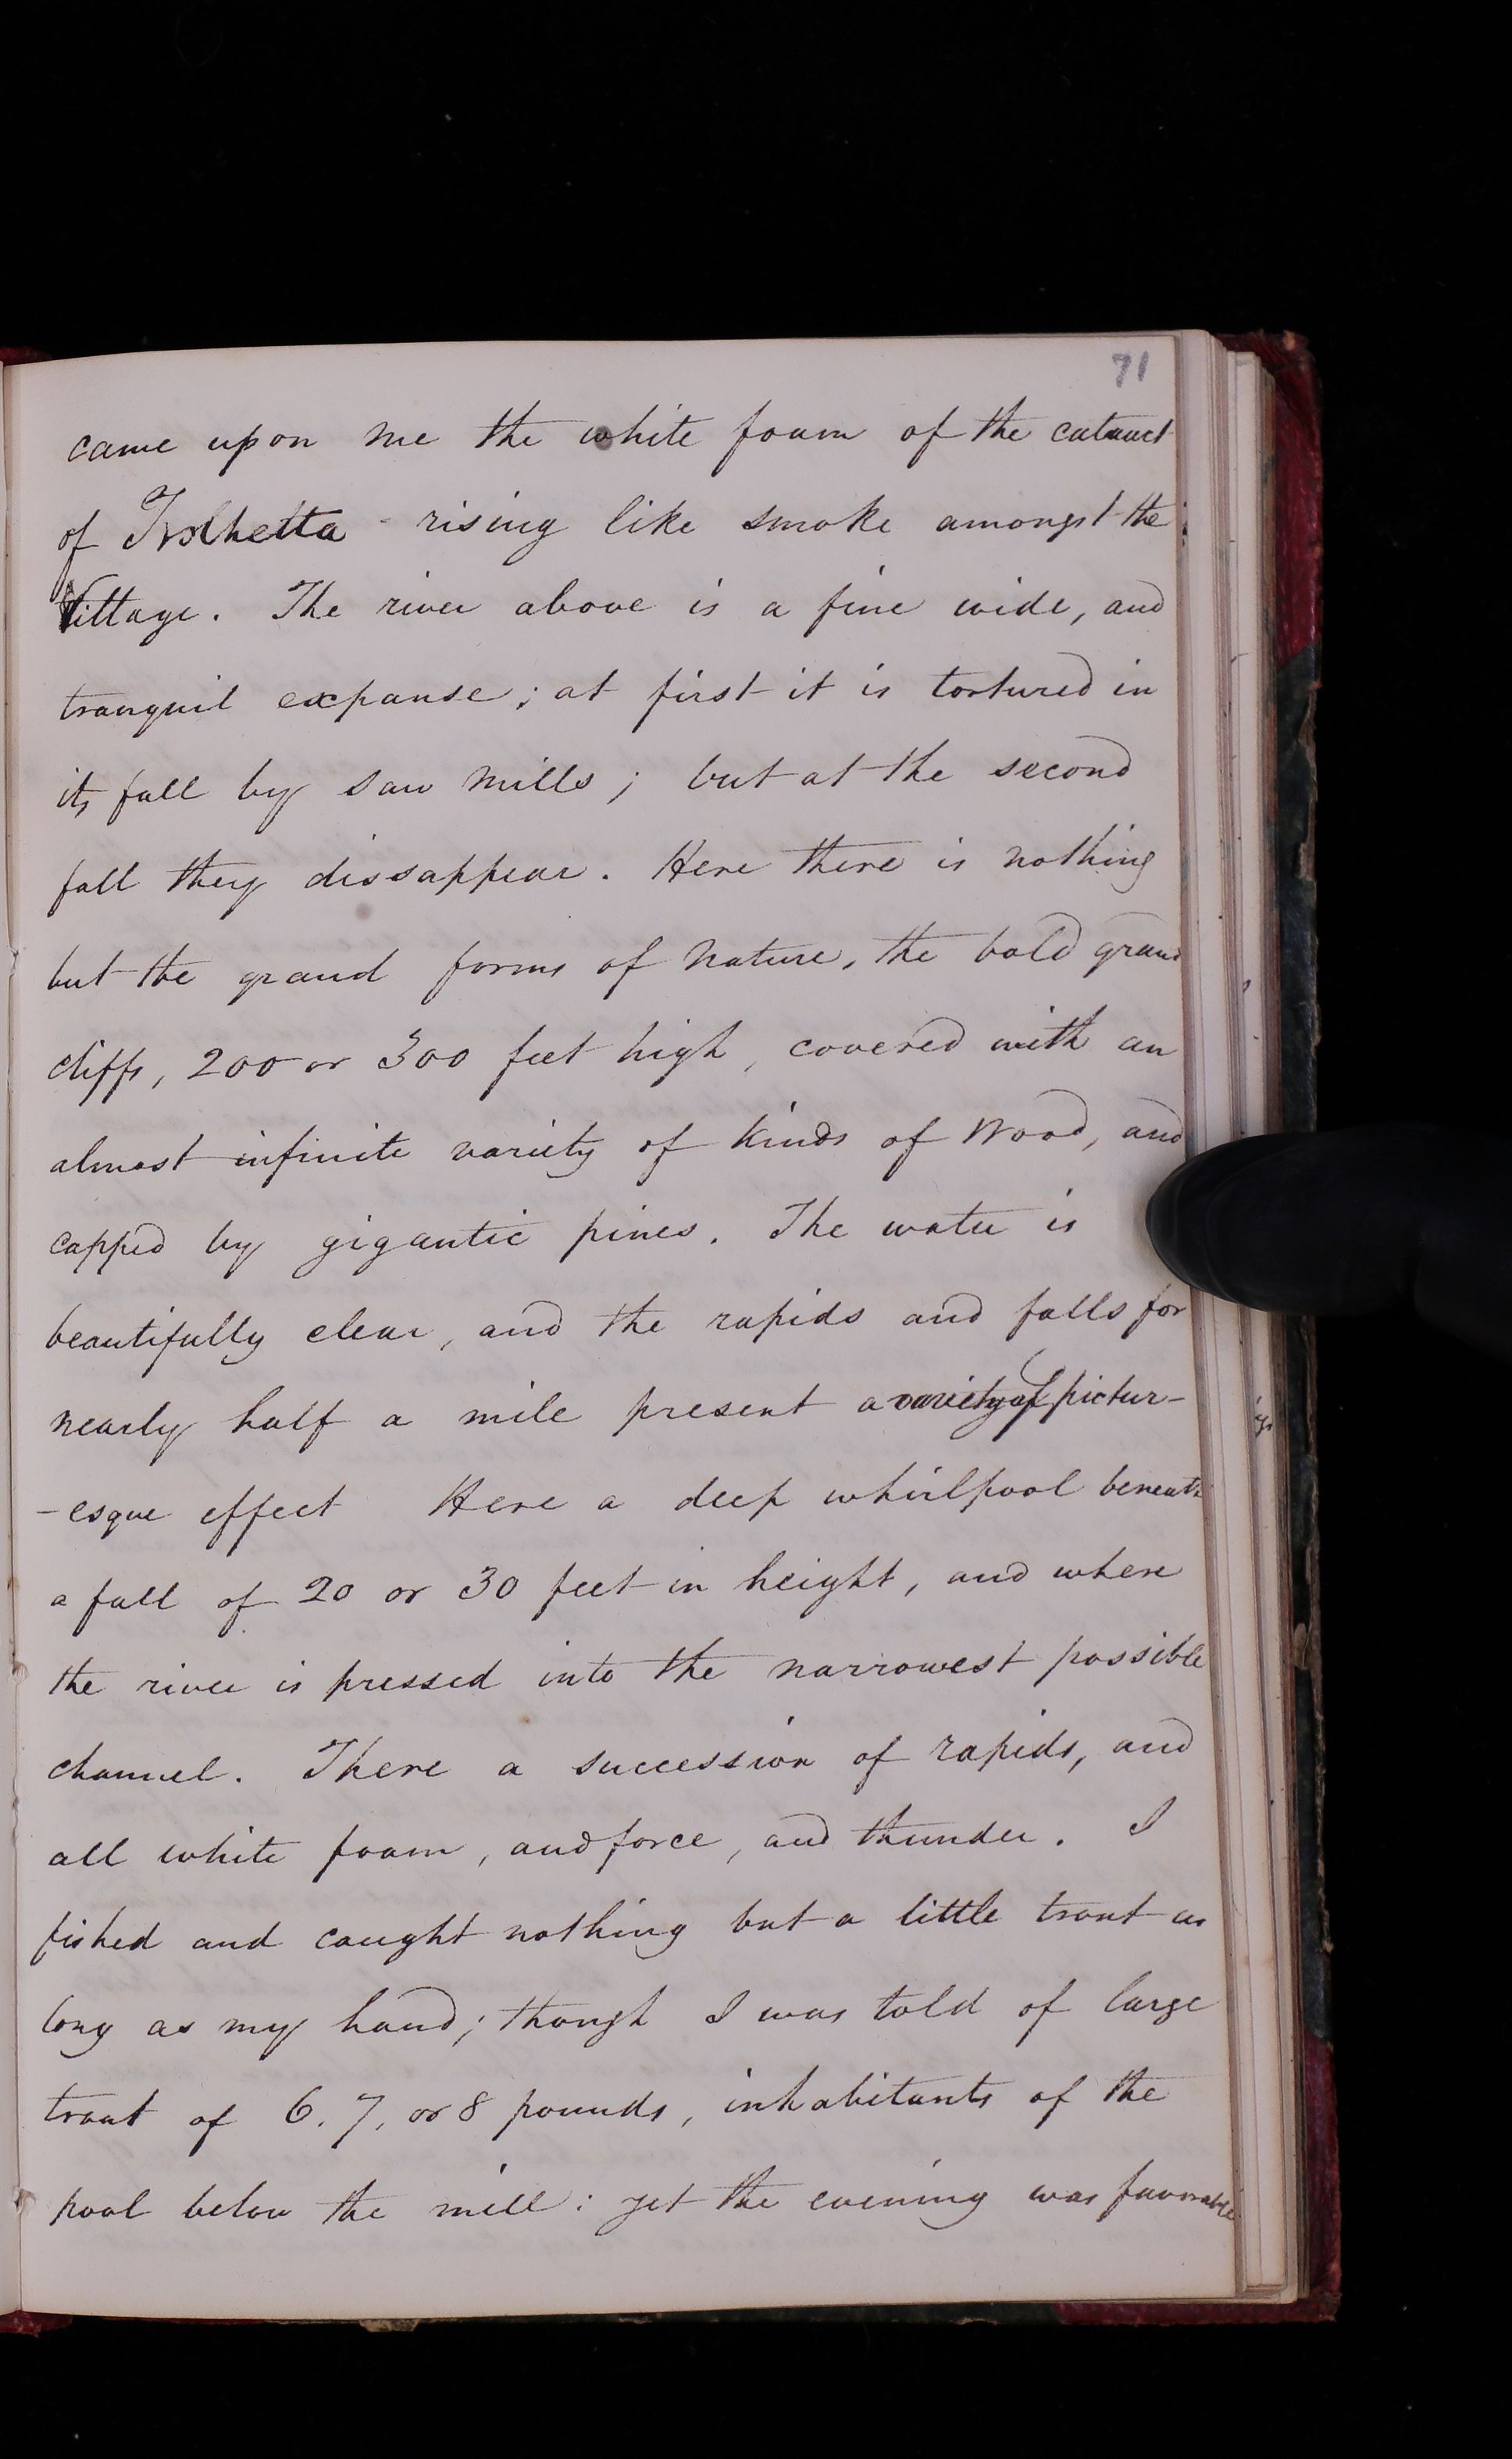 71
came upon me the white foam of the cataract
of Trolhetta - rising like smoke amongst the
Village. The river above is a fine wide, and
tranquil expanse; at first it is tortured in
its fall by saw mills; but at the second
fall they dissappear. Here there is nothing
but the grand forms of Nature, the bold grand
cliffs, 200 or 300 feet high, covered with an
almost infinite variety of kinds of Wood, and
capped by gigantic pines. The water is
beautifully clear, and the rapids and falls for
nearly half a mile present a variety of pictur-
-esque effect Here a deep whirlpool beneath
a fall of 20 or 30 feet in height, and where
the river is pressed into the narrowest possible
channel. There a succession of rapids, and
all white foam, and force, and thunder. I
fished and caught nothing but a little trout as
long as my hand; though I was told of large
trout of 6. 7. or 8 pounds, inhabitants of the
pool below the mill: yet the evening was favorable